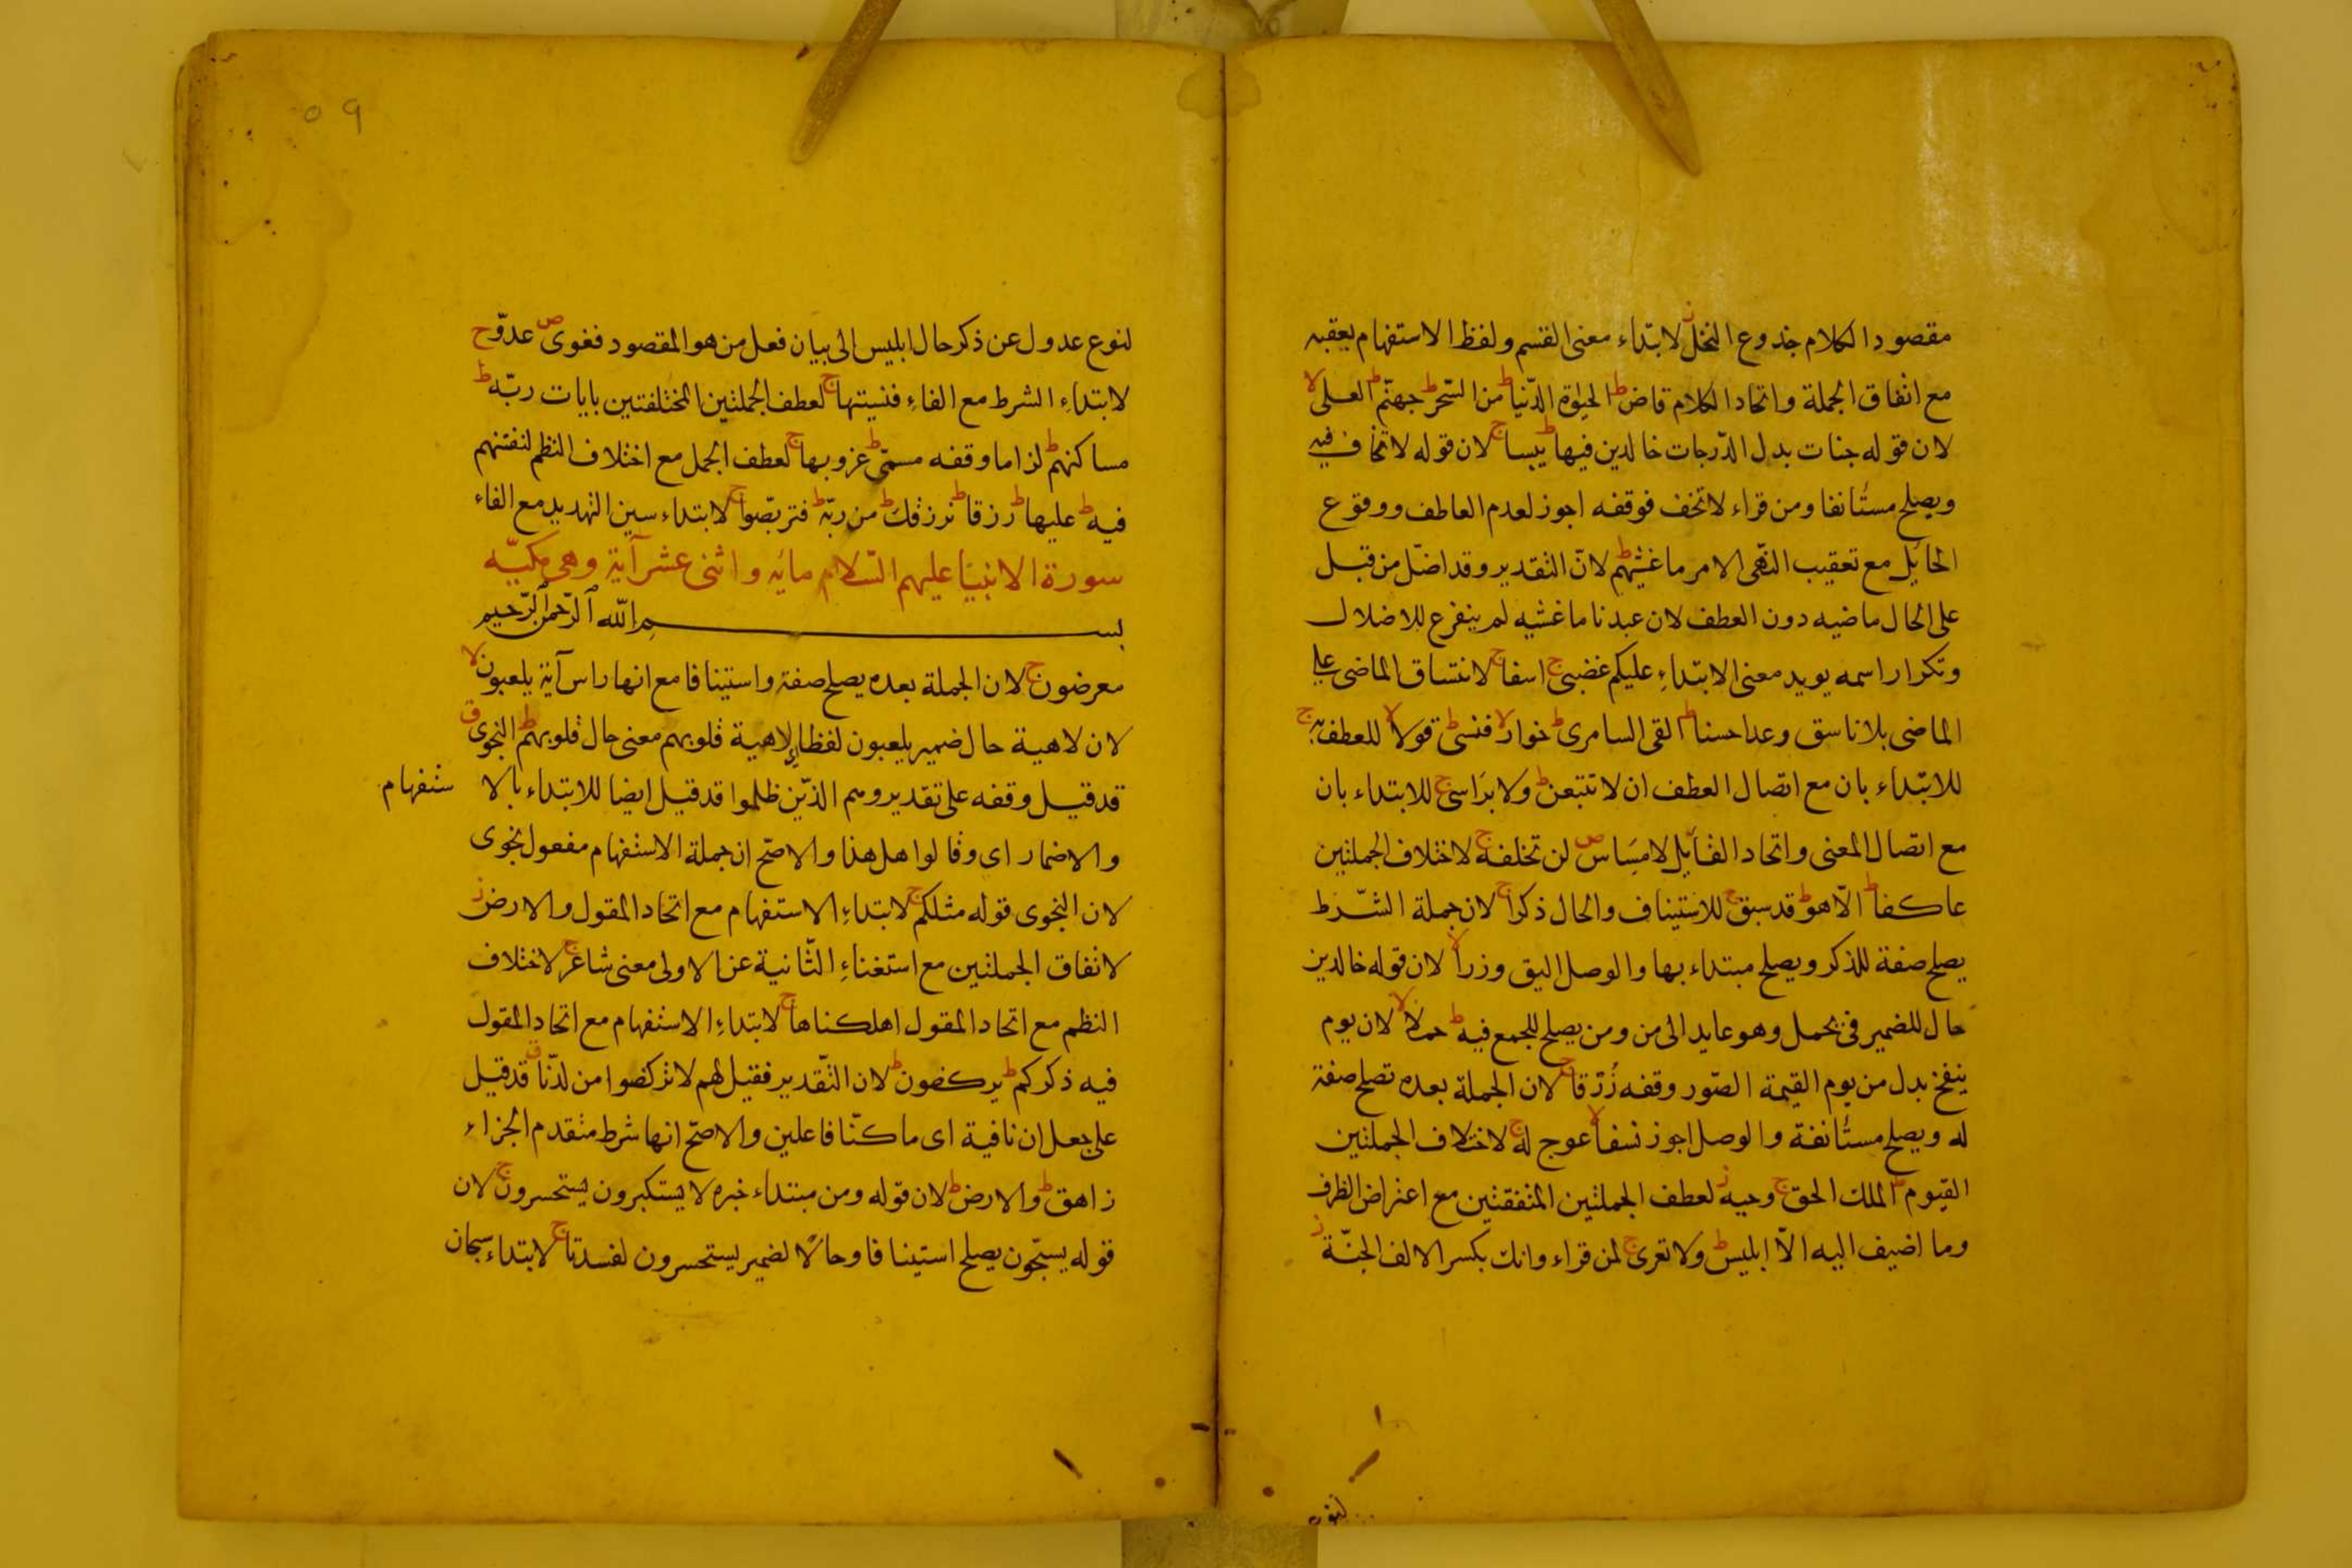 مقصود الكلام جذوع النخل ز لابتداء معنى القسم ولفظ الاستفهام يعقبه
مع اتفاق الجملة واتحاد الكلام قاض ط الحيوة الدّنيا ط من السّحر ط جهنّم ط العلى لا
لان قوله جنات بدل الدّرجات خالدين فيها ط يبسا ج لان قوله لا تخاف فيه
ويصلح مستأنفا ومن قراء لا تخف فوقفه اجوز لعدم العاطف ووقوع
الحائل مع تعقيب النّهى الامر ما غشيهم ط لانّ التقدير وقد اضلّ من قبل
على الحال ماضيه دون العطف لان عبدنا ما غشيه لم يتفرع للاضلال
وتكرار اسمه يويد معنى الابتداءِ عليكم غضبى ج اسفا ج لانتساق الماضى على
الماضى بلا ناسق وعدا حسنا ط القى السامرى ط خوار لا فنسى ط قولا لا للعطف به ج
للابتداء بان مع اتصال العطف ان لا تتبعن ط ولا براسى ج للابتداء بان
مع اتصال المعنى واتحاد القائل لا مِسَاس ص لن تخلفه ج لاختلاف الجملتين
عاكفا ط الّا هو ط قد سبق ج للاستيناف والحال ذكرا ج لان جملة الشّرط
يصلح صفة للذكر ويصلح مبتداء بها والوصل اليق وزرا لا لان قوله خالدين
حال للضمير فى يحمل وهو عايد الى من ومن يصلح للجمع فيه ط حملا لا لان يوم
ينفخ بدل من يوم القيمة الصّور وقفه زُرْقا ج لان الجملة بعده تصلح صفة
له ويصلح مستأنفة والوصل اجوز نسفا لا عوج له ج لاختلاف الجملتين
القيوم ط الملك الحق ج وحيه ز لعطف الجملتين المتفقتين مع اعتراض الظرف
وما اضيف اليه الّا ابليس ط ولا تعرى ج لمن قراء وانك بكسر الالف الجنّة ز
لنوع
٥٩
لنوع عدول عن ذكر حال ابليس الى بيان فعل من هو المقصود فغوى ص عدوّ ج
لابتداءِ الشرط مع الفاءِ فنسيتها ج لعطف الجملتين المختلفتين بايات ربّه ط
مساكنهم ط لزاما وقفه مسمّى ط غروبها ج لعطف الجمل مع اختلاف النظم لنفتنهم
فيه ط عليها ط رزقا ط نرزقك ط من ربّه ط فتربّصوا ج لابتداء سين التهديد مع الفاء
سورة الانبيا عليهم السّلام مائه واثنى عشر آية وهى مكيّه
بسم الله الرّحمن الرّحيم
معرضون ج لان الجملة بعده يصلح صفة واستينافا مع انها راس آية يلعبون لا
لان لاهية حال ضمير يلعبون لفظا لاهية قلوبهم معنى حال قلوبهم ط النجوى ق
قد قيل وقفه على تقدير وهم الذين ظلموا قد قيل ايضا للابتداء بالا ستفهام
والاضمار اى وقالوا هل هذا والاصحّ ان جملة الاستفهام مفعول نجوى
لان النجوى قوله مثلكم ج لابتداءِ الاستفهام مع اتحاد المقول والارض ز
لاتفاق الجملتين مع استغناءِ الثّانية عن الاولى معنى شاعر ج لاختلاف
النظم مع اتحاد المقول اهلكناها ج لابتداءِ الاستفهام مع اتحاد المقول
فيه ذكركم ط يركضون ط لان التّقدير فقيل لهم لا تركضوا من لدنّا ق قد قيل
على جعل ان نافية اى ما كنّا فاعلين والاصحّ انها شرط متقدم الجزاء
زاهق ط والارض ط لان قوله ومن مبتداء خبره لا يستكبرون يستحسرون ج لان
قوله يسبّحون يصلح استينافا وحالًا لضمير يستحسرون لفسدتا ج لابتداء سبحان